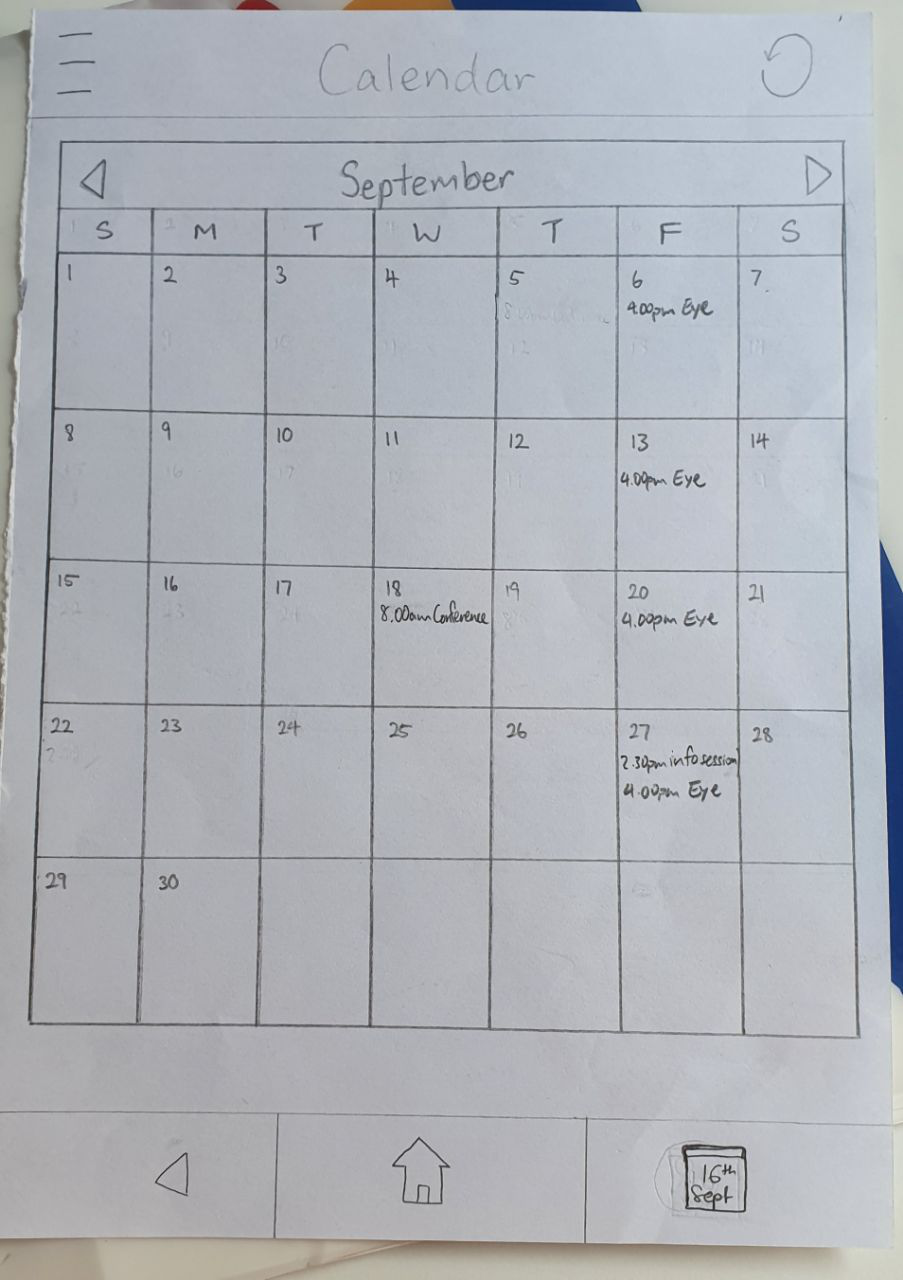 Calendar
September
S M T W T F S
1 2 3 4 5 6 7
4.00pm Eye
8 9 10 11 12 13 14
4.00pm Eye
15 16 17 18 19 20 21
8.00am Conference 4.00pm Eye
22 23 24 25 26 27 28
2.30pm info session
4.00pm Eye
29 30
16th
Sept